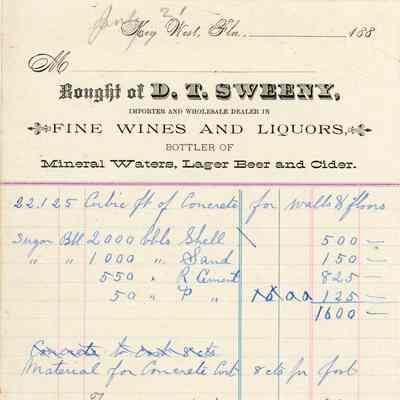 Key West, Fla. 188
M
Bought of D. T. SWEENY,
IMPORTER AND WHOLESALE DEALER IN
FINE WINES AND LIQUORS,
BOTTLER OF
Mineral Waters, Lager Beer and Cider.
22.125 Cubic ft of Concrete for walls & floors
Sugar Bbl 2000 bbls Shell 500 —
" " 1000 " Sand 150 —
550 " R Cement 825 —
50 " P " 125 —
1600 —
Concrete to cost 8 cts
Material for Concrete Cost 8 cts pr foot